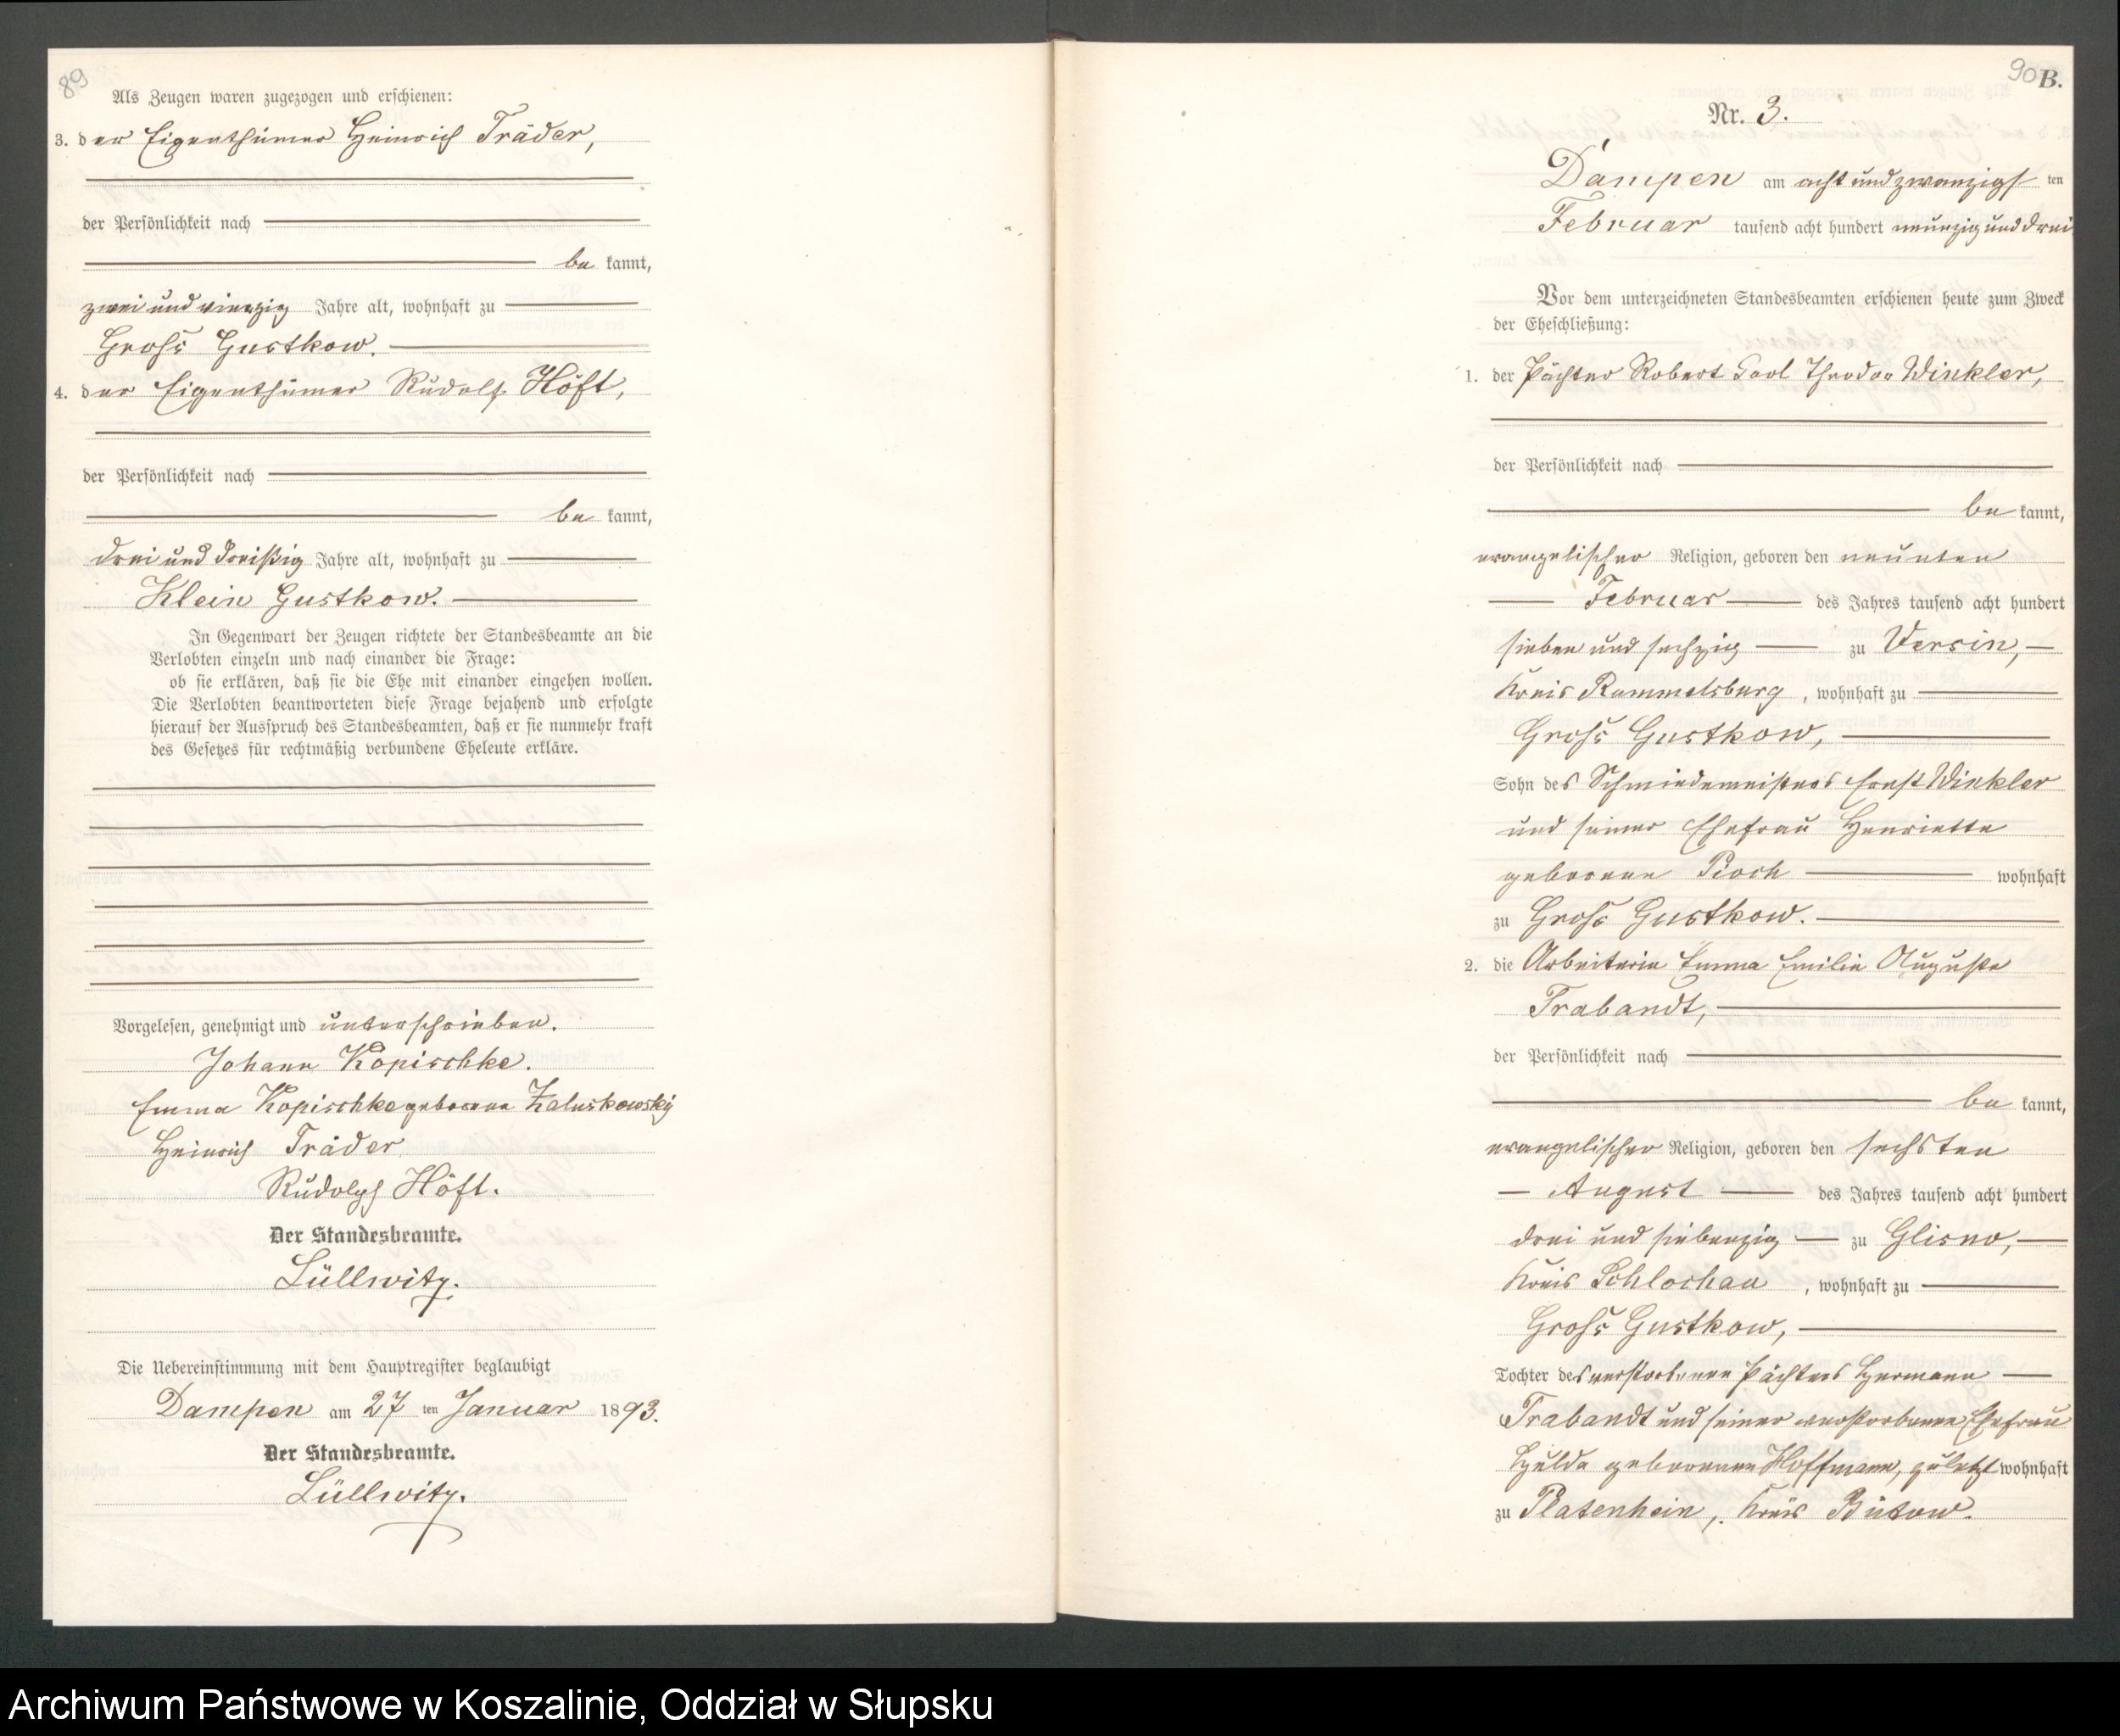 89
Als Zeugen waren zugezogen und erschienen:
3. der Eigenthümer Heinrich Träder,
der Persönlichkeit nach
be kannt,
zwei und vierzig Jahre alt, wohnhaft zu
Gross Gustkow.
4. der Eigenthümer Rudolf Höft,
der Persönlichkeit nach
be kannt,
drei und dreißig Jahre alt, wohnhaft zu
Klein Gustkow.
In Gegenwart der Zeugen richtete der Standesbeamte an die
Verlobten einzeln und nach einander die Frage:
ob sie erklären, daß sie die Ehe mit einander eingehen wollen.
Die Verlobten beantworteten diese Frage bejahend und erfolgte
hierauf der Ausspruch des Standesbeamten, daß er sie nunmehr kraft
des Gesetzes für rechtmäßig verbundene Eheleute erkläre.
Vorgelesen, genehmigt und unterschrieben.
Johann Kopischke.
Emma Kopischke geborene Zaluskowsky
Heinrich Träder
Rudolph Höft.
Der Standesbeamte.
Lüllwitz.
Die Uebereinstimmung mit dem Hauptregister beglaubigt
Dampen am 27 ten Januar 1893.
Der Standesbeamte.
Lüllwitz.
90 B.
Nr. 3.
Dampen am acht und zwanzigs ten
Februar tausend acht hundert neunzig und drei
Vor dem unterzeichneten Standesbeamten erschienen heute zum Zweck
der Eheschließung:
1. der Pächter Robert Carl Theodor Winkler,
der Persönlichkeit nach
be kannt,
evangelischer Religion, geboren den neunten
Februar des Jahres tausend acht hundert
sieben und sechzig zu Versin,
Kreis Rummelsburg, wohnhaft zu
Gross Gustkow,
Sohn des Schmiedemeisters Ernst Winkler
und seiner Ehefrau Henriette
geborene Pioch wohnhaft
zu Gross Gustkow.
2. die Arbeiterin Emma Emilie Auguste
Trabandt,
der Persönlichkeit nach
be kannt,
evangelischer Religion, geboren den sechsten
August des Jahres tausend acht hundert
drei und siebenzig zu Glisno,
Kreis Schlochau, wohnhaft zu
Gross Gustkow,
Tochter des verstorbenen Pächters Hermann
Trabandt und seiner verstorbenen Ehefrau
Hulda geborenen Hoffmann, zuletzt wohnhaft
zu Platenhein, Kreis Bütow.
Archiwum Państwowe w Koszalinie, Oddział w Słupsku